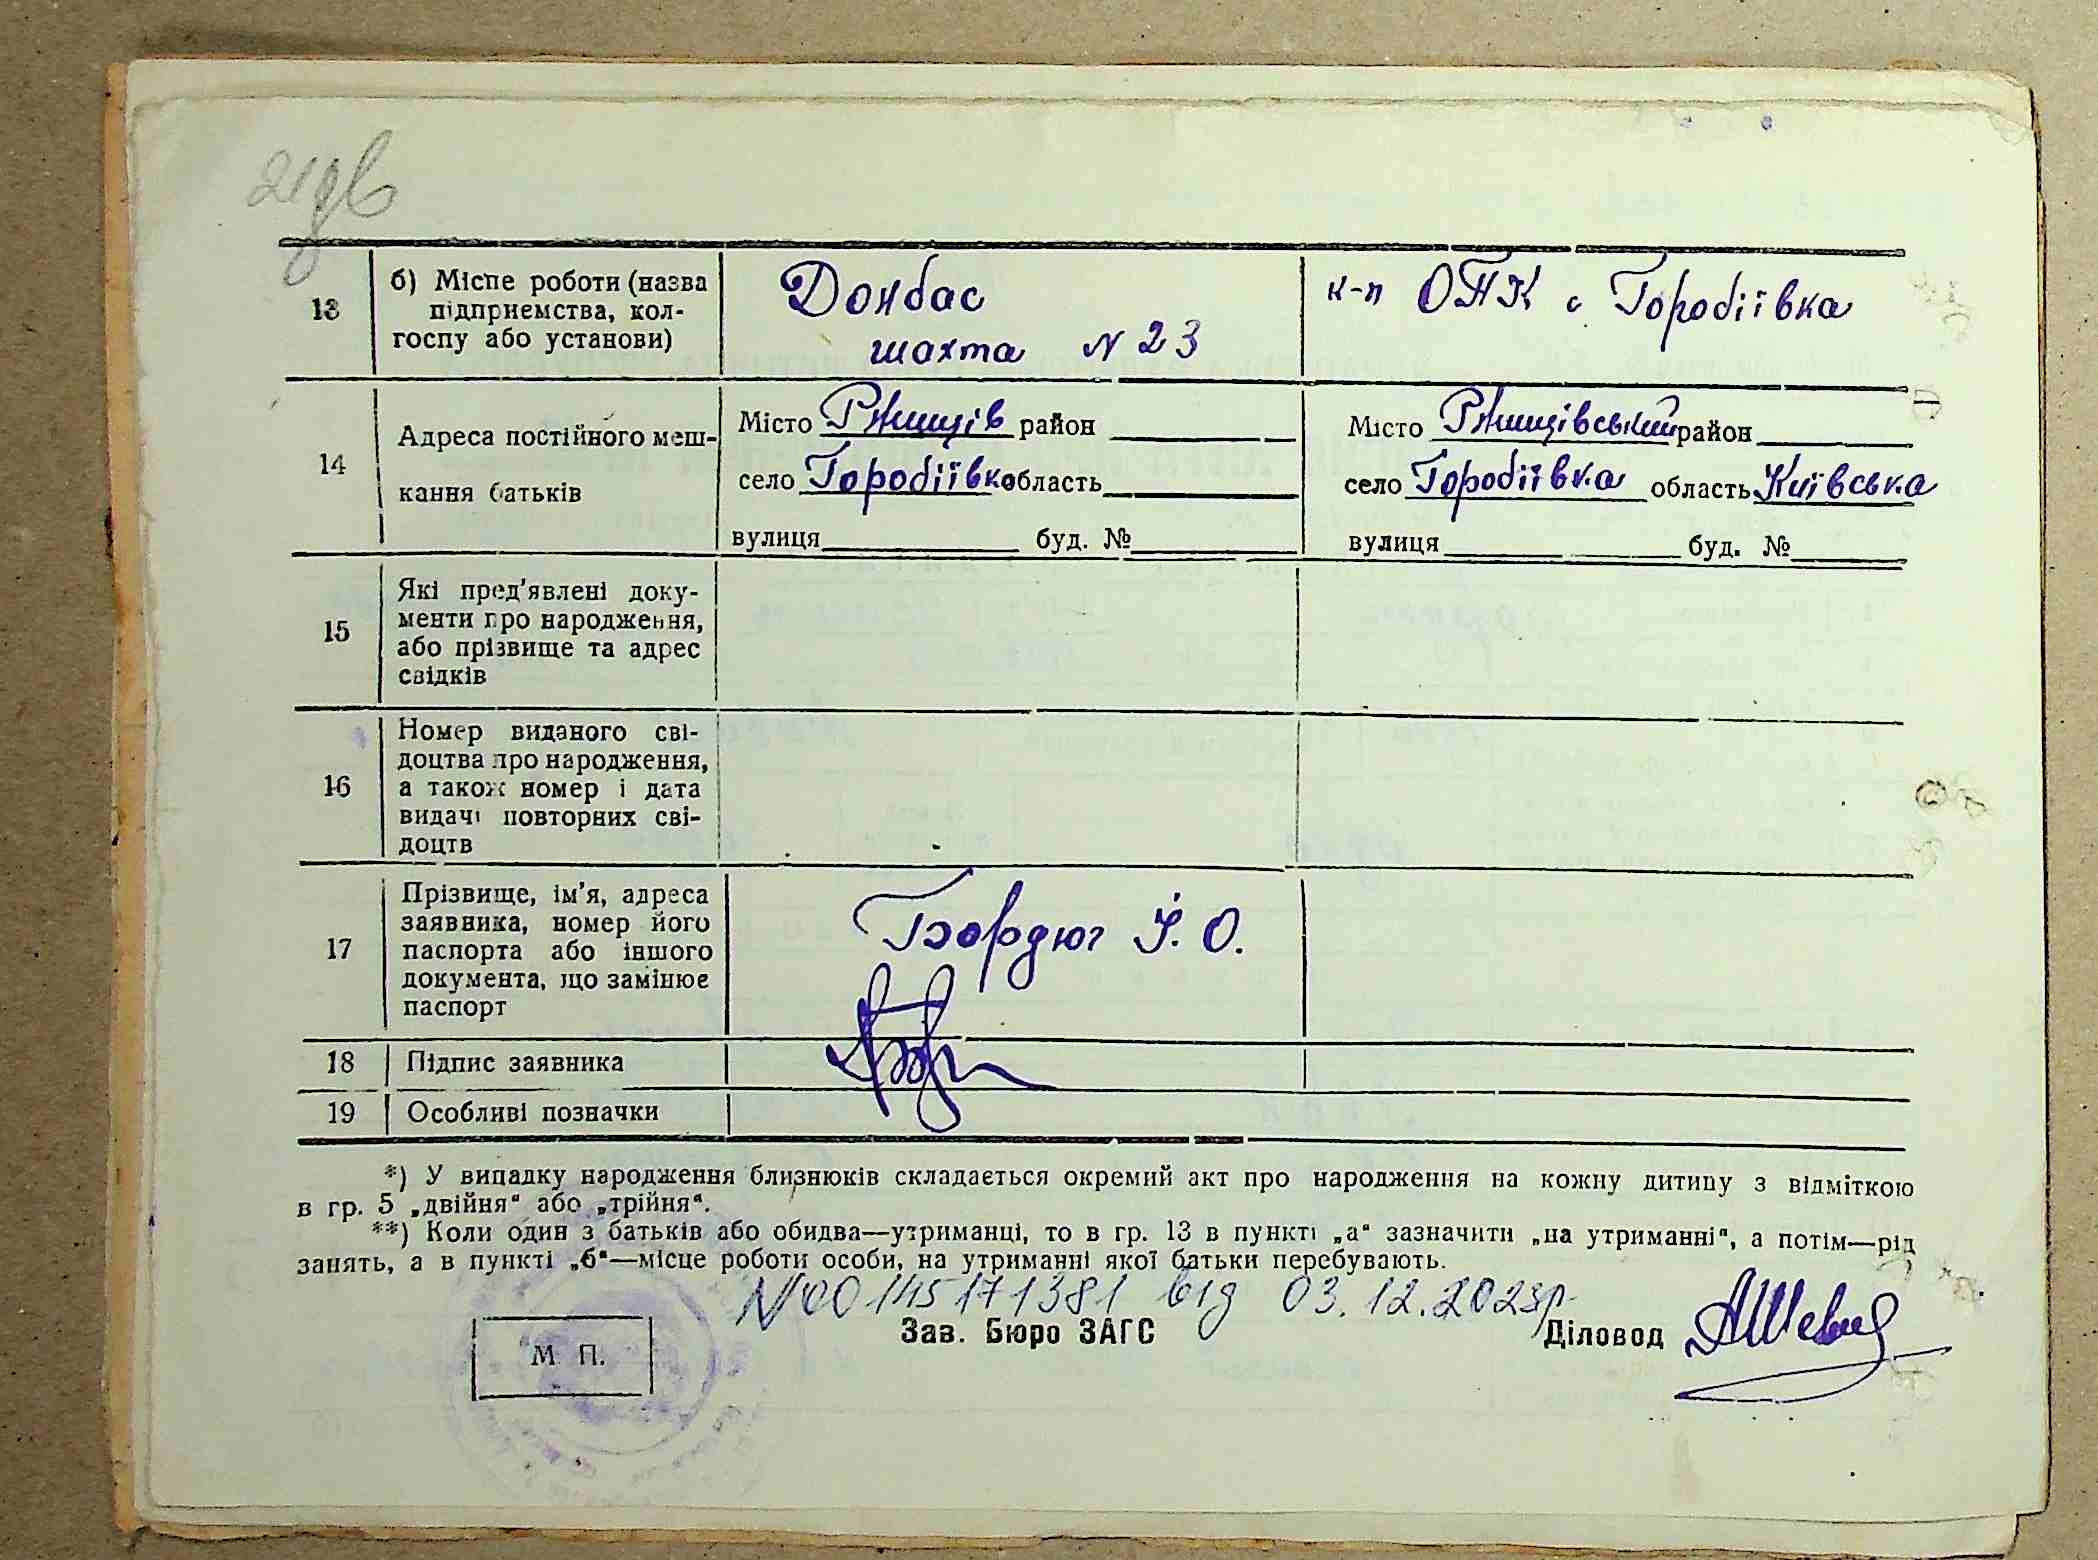 21 дв
13 б) Місце роботи (назва підприємства, кол-госпу або установи) Донбас шахта N 23 к-п ОПК с Горобіївка
14 Адреса постійного меш-кання батьків
Місто Ржищів район
село Горобіївка область
вулиця буд. №
Місто Ржищівський район
село Горобіївка область Київська
вулиця буд. №
15 Які пред'явлені доку-
менти про народження,
або прізвище та адрес
свідків
16 Номер виданого сві-
доцтва про народження,
а також номер і дата
видачі повторних сві-
доцтв
17 Прізвище, ім'я, адреса
заявника, номер його
паспорта або іншого
документа, що замінює
паспорт
Бордюг І. О.
18 Підпис заявника
19 Особливі позначки
*) У випадку народження близнюків складається окремий акт про народження на кожну дитину з відміткою
в гр. 5 „двійня" або „трійня".
**) Коли один з батьків або обидва—утриманці, то в гр. 13 в пункті „а" зазначити „на утриманні", а потім—рід
занять, а в пункті „б"—місце роботи особи, на утриманні якої батьки перебувають.
№00145171381 від 03.12.2023р.
М П.
Зав. Бюро ЗАГС
Діловод